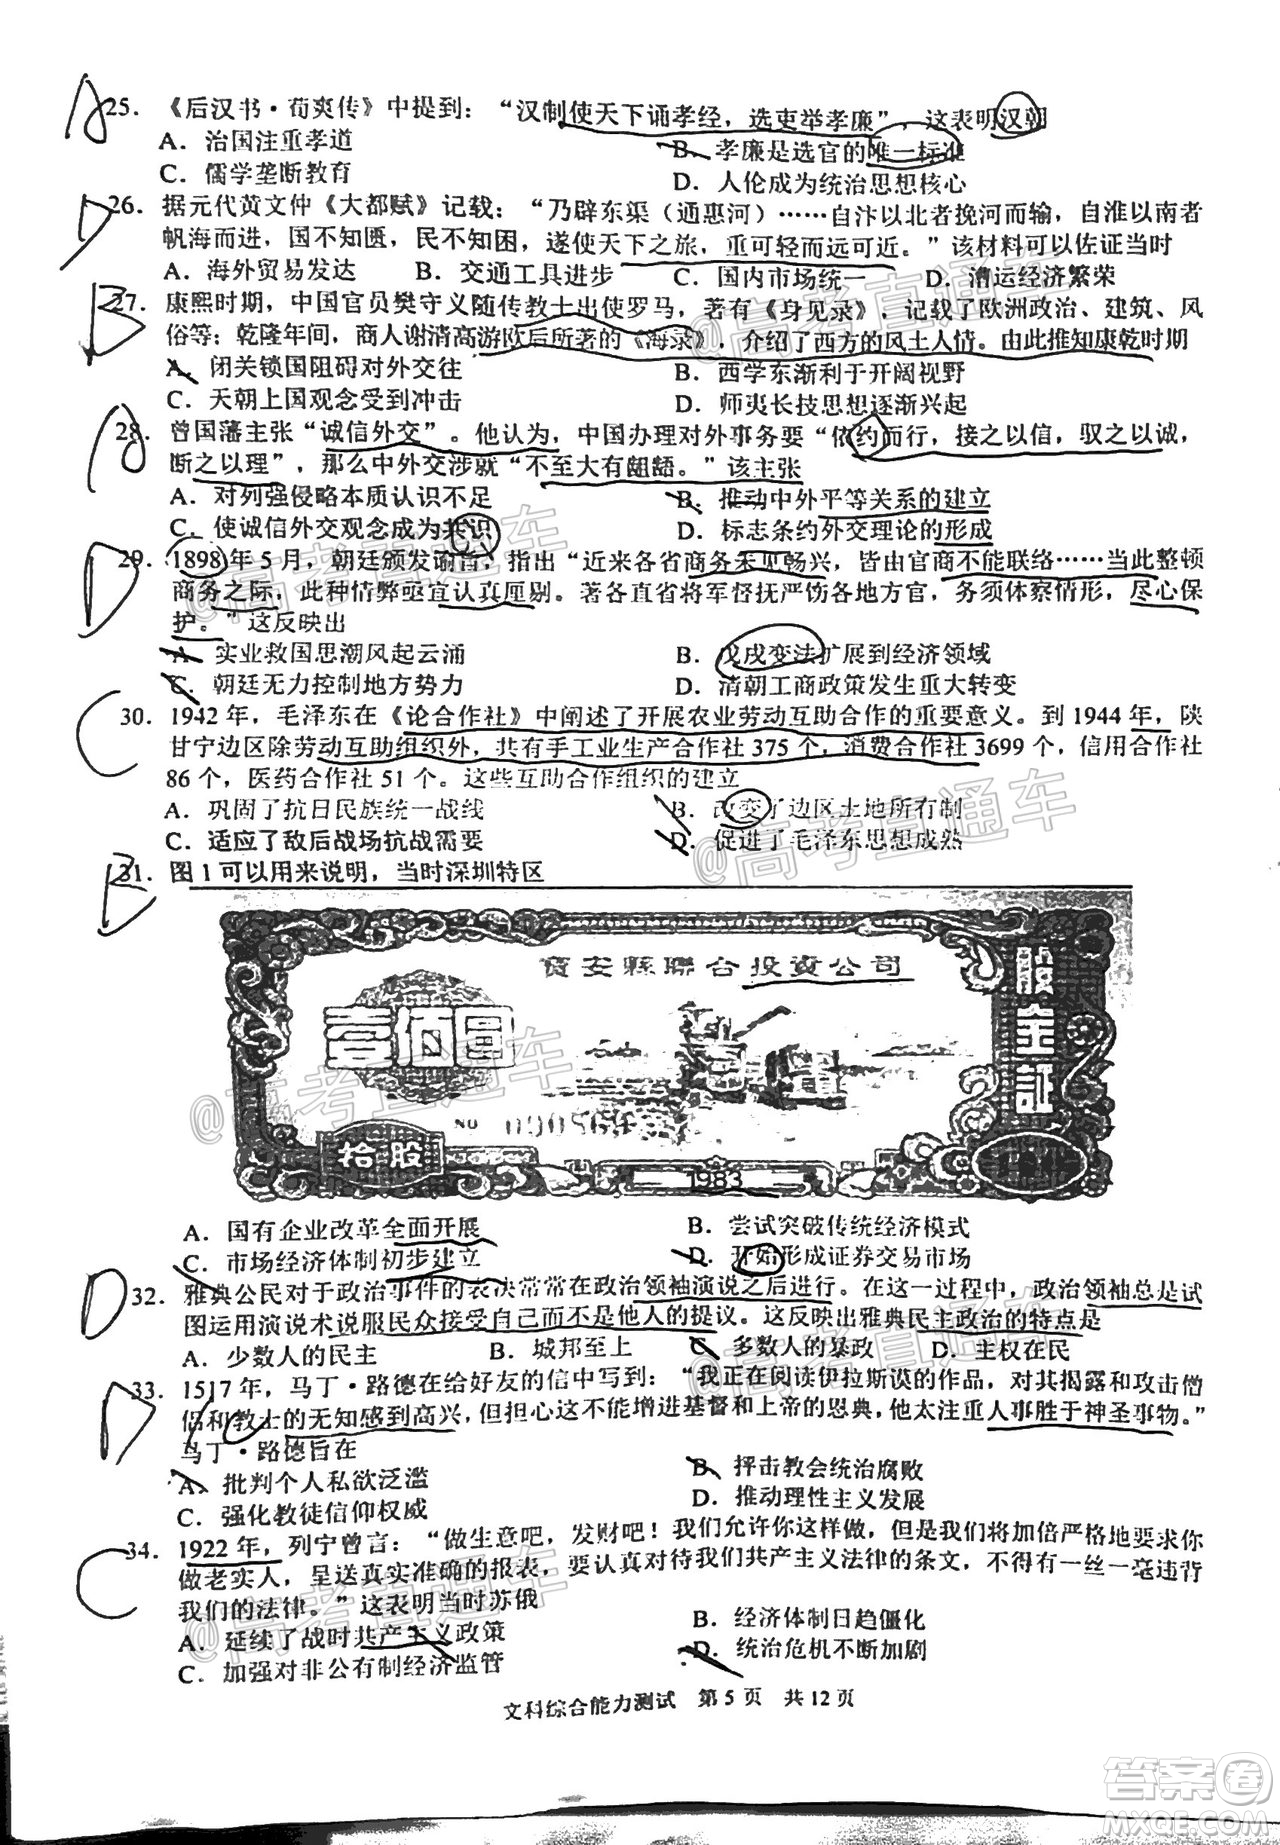 A 25. 《后汉书·荀爽传》中提到：“汉制使天下诵孝经，选吏举孝廉”，这表明汉朝
A. 治国注重孝道 B. 孝廉是选官的唯一标准
C. 儒学垄断教育 D. 人伦成为统治思想核心
D 26. 据元代黄文仲《大都赋》记载：“乃辟东渠（通惠河）……自汴以北者挽河而输，自淮以南者
帆海而进，国不知匮，民不知困，遂使天下之旅，重可轻而远可近。”该材料可以佐证当时
A. 海外贸易发达 B. 交通工具进步 C. 国内市场统一 D. 漕运经济繁荣
B 27. 康熙时期，中国官员樊守义随传教士出使罗马，著有《身见录》，记载了欧洲政治、建筑、风
俗等；乾隆年间，商人谢清高游欧后所著的《海录》，介绍了西方的风土人情。由此推知康乾时期
A. 闭关锁国阻碍对外交往 B. 西学东渐利于开阔视野
C. 天朝上国观念受到冲击 D. 师夷长技思想逐渐兴起
A 28. 曾国藩主张“诚信外交”。他认为，中国办理对外事务要“依约而行，接之以信，驭之以诚，
断之以理”，那么中外交涉就“不至大有龃龉。”该主张
A. 对列强侵略本质认识不足 B. 推动中外平等关系的建立
C. 使诚信外交观念成为共识 D. 标志条约外交理论的形成
D 29. 1898年5月，朝廷颁发谕旨，指出“近来各省商务未见畅兴，皆由官商不能联络……当此整顿
商务之际，此种情弊亟宜认真厘剔。著各直省将军督抚严饬各地方官，务须体察情形，尽心保
护。”这反映出
A. 实业救国思潮风起云涌 B. 戊戌变法扩展到经济领域
C. 朝廷无力控制地方势力 D. 清朝工商政策发生重大转变
C 30. 1942年，毛泽东在《论合作社》中阐述了开展农业劳动互助合作的重要意义。到1944年，陕
甘宁边区除劳动互助组织外，共有手工业生产合作社375个，消费合作社3699个，信用合作社
86个，医药合作社51个。这些互助合作组织的建立
A. 巩固了抗日民族统一战线 B. 改变了边区土地所有制
C. 适应了敌后战场抗战需要 D. 促进了毛泽东思想成熟
B 31. 图1可以用来说明，当时深圳特区
寶安縣聯合投資公司
壹佰圓
股金証
NO
拾股
1983
A. 国有企业改革全面开展 B. 尝试突破传统经济模式
C. 市场经济体制初步建立 D. 开始形成证券交易市场
D 32. 雅典公民对于政治事件的表决常常在政治领袖演说之后进行。在这一过程中，政治领袖总是试
图运用演说术说服民众接受自己而不是他人的提议。这反映出雅典民主政治的特点是
A. 少数人的民主 B. 城邦至上 C. 多数人的暴政 D. 主权在民
D 33. 1517年，马丁·路德在给好友的信中写到：“我正在阅读伊拉斯谟的作品，对其揭露和攻击僧
侣和教士的无知感到高兴，但担心这不能增进基督和上帝的恩典，他太注重人事胜于神圣事物。”
马丁·路德旨在
A. 批判个人私欲泛滥 B. 抨击教会统治腐败
C. 强化教徒信仰权威 D. 推动理性主义发展
C 34. 1922年，列宁曾言：“做生意吧，发财吧！我们允许你这样做，但我们将加倍严格地要求你
做老实人，呈送真实准确的报表，要认真对待我们共产主义法律的条文，不得有一丝一毫违背
我们的法律。”这表明当时苏俄
A. 延续了战时共产主义政策 B. 经济体制日趋僵化
C. 加强对非公有制经济监管 D. 统治危机不断加剧
文科综合能力测试 第5页 共12页
@高考直通车
@高考直通车
@高考直通车
@高考直通车
@高考直通车
@高考直通车
@高考直通车
答案卷
MXQE.COM